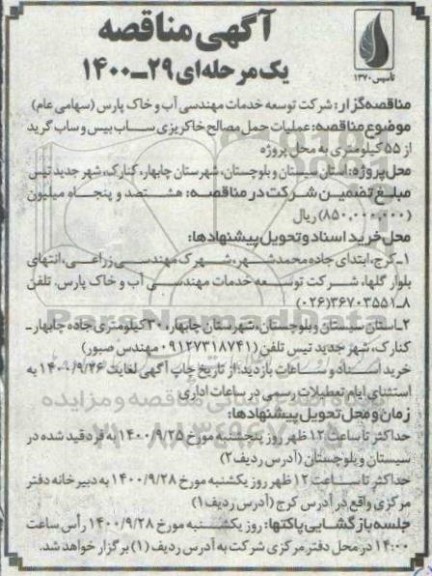 آگهی مناقصه
یک مرحله‌ای ۲۹-۱۴۰۰
تأسیس ۱۳۷۰
مناقصه‌گزار: شرکت توسعه خدمات مهندسی آب و خاک پارس (سهامی عام)
موضوع مناقصه: عملیات حمل مصالح خاکریزی ساب بیس و ساب گرید
از ۵۵ کیلومتری به محل پروژه
محل پروژه: استان سیستان و بلوچستان، شهرستان چابهار، کنارک، شهر جدید تیس
مبلغ تضمین شرکت در مناقصه: هشتصد و پنجاه میلیون
(۸۵۰,۰۰۰,۰۰۰) ریال
محل خرید اسناد و تحویل پیشنهادها:
۱-کرج، ابتدای جاده محمدشهر، شهرک مهندسی زراعی، انتهای
بلوار گلها، شرکت توسعه خدمات مهندسی آب و خاک پارس، تلفن
۸-۳۶۷۰۳۵۵۱ (۰۲۶)
۲-استان سیستان و بلوچستان، شهرستان چابهار، ۳۰ کیلومتری جاده چابهار-
کنارک، شهر جدید تیس تلفن (۰۹۱۲۷۳۱۸۷۴۱ مهندس صبور)
خرید اسناد و ساعات بازدید: از تاریخ چاپ آگهی لغایت ۱۴۰۰/۹/۲۶ به
استثنای ایام تعطیلات رسمی در ساعات اداری
زمان و محل تحویل پیشنهادها:
حداکثر تا ساعت ۱۲ ظهر روز پنجشنبه مورخ ۱۴۰۰/۹/۲۵ به فرد قید شده در
سیستان و بلوچستان (آدرس ردیف ۲)
حداکثر تا ساعت ۱۲ ظهر روز یکشنبه مورخ ۱۴۰۰/۹/۲۸ به دبیرخانه دفتر
مرکزی واقع در آدرس کرج (آدرس ردیف ۱)
جلسه بازگشایی پاکتها: روز یکشنبه مورخ ۱۴۰۰/۹/۲۸ رأس ساعت
۱۴:۰۰ در محل دفتر مرکزی شرکت به آدرس ردیف (۱) برگزار خواهد شد.
ParsNamadData